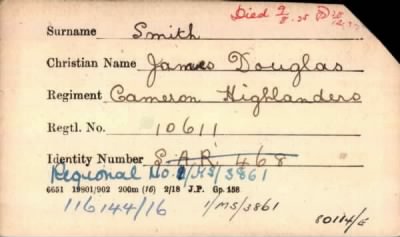 Died 9/8.25
Surname Smith
Christian Name James Douglas
Regiment Cameron Highlanders
Regtl. No. 10611
Identity Number E.A.R. 468
Regional No. 1/MS/3861
6651 19801/902 200m (16) 2/18 J.P. Gp. 158
116144/16 1/MS/3861
80114/E